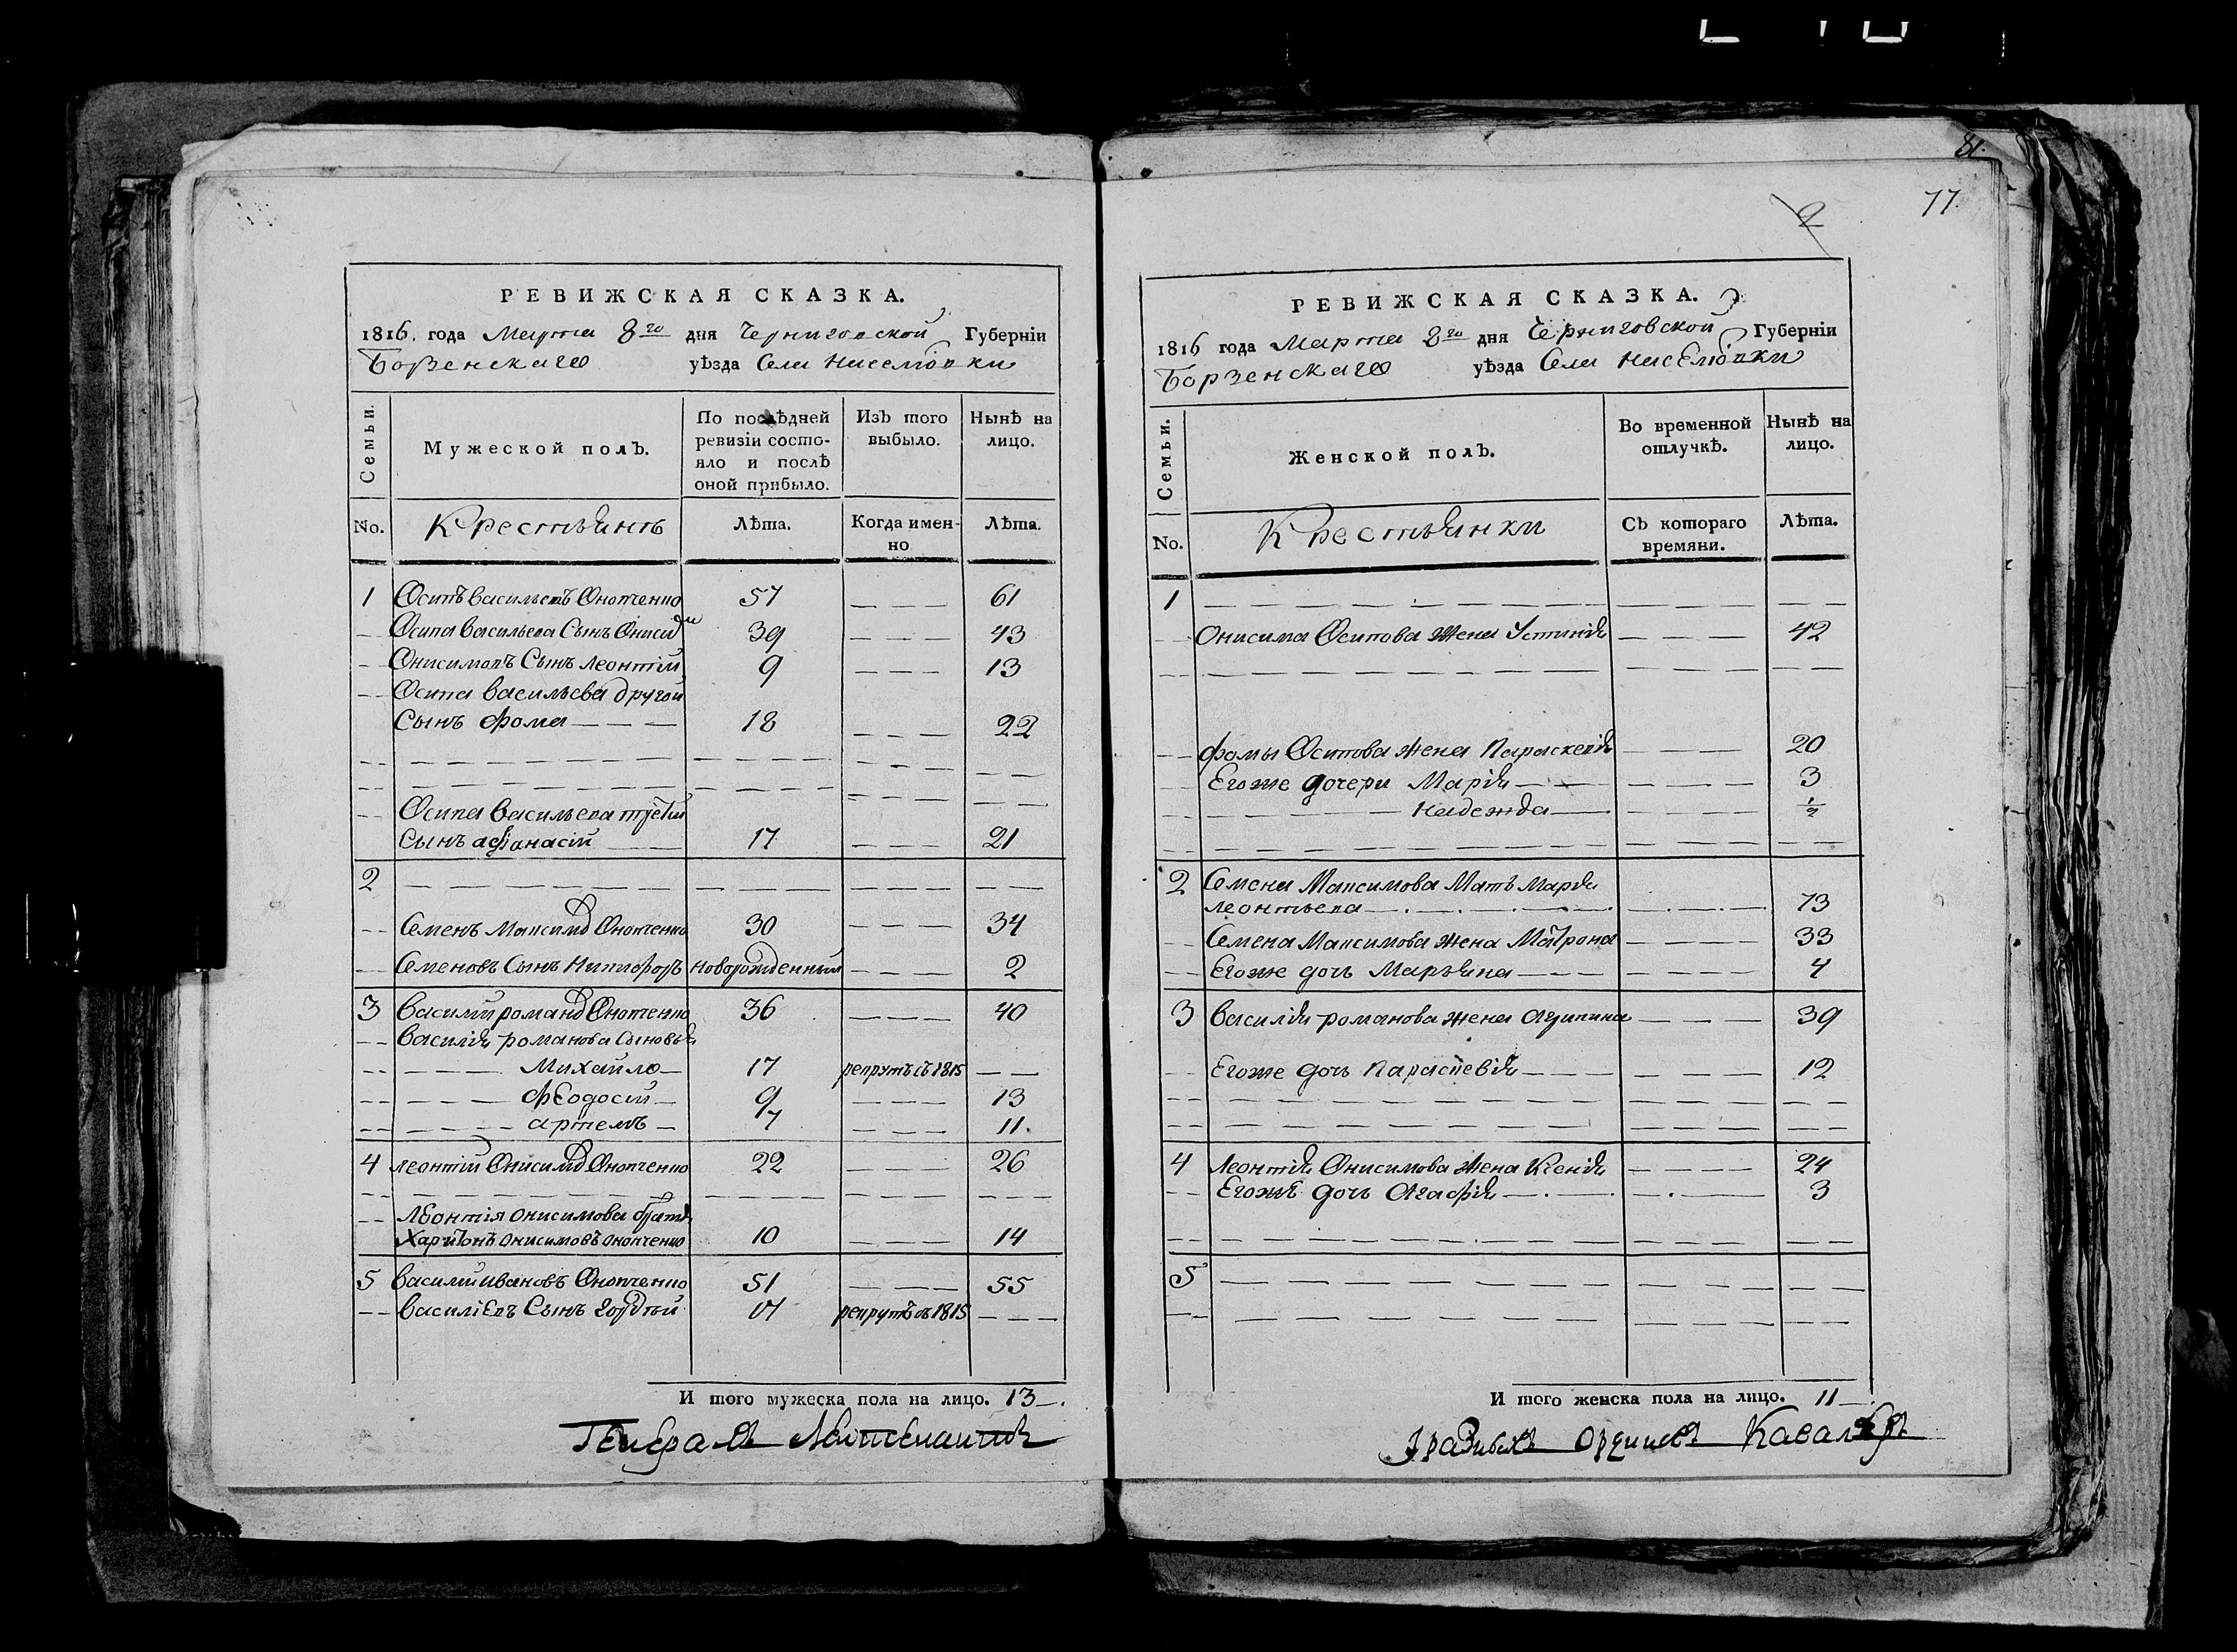 81.
77.
2
РЕВИЖСКАЯ СКАЗКА.
1816. года Марта 8го дня Черниговской Губерніи
Борзенскаго уѣзда Села Киселювки
Семьи.
Мужеской полъ.
По послѣдней ревизіи состояло и послѣ оной прибыло.
Изъ того выбыло.
Нынѣ на лицо.
No. Крестьянъ Лѣта. Когда именно Лѣта.
1 Осипъ Васильевъ Онопченко 57 — — — 61
— Осипа Васильева Сынъ Онисим 39 — — — 43
— Онисимовъ Сынъ Леонтій 9 — — — 13
— Осипа Васильева другой
Сынъ Фома — — — 18 — — — 22
— Осипа Васильева третій
Сынъ Афанасій 17 — — — 21
2 — — — — — —
— Семенъ Максимов Онопченко 30 — — — 34
— Семеновъ Сынъ Никифоръ новорожденный — — — 2
3 Василий Романов Онопченко 36 — — — 40
— Василія Романова Сыновья
— — — — Михайло — 17 рекрутъ въ 1815 — —
— — — — Феодосій — 9 — — — 13
— — — — Артемъ — 7 — — — 11.
4 Леонтій Онисимов Онопченко 22 — — — 26
— Леонтія Онисимова братъ
Харитонъ Онисимовъ Онопченко 10 — — — 14
5 Василий Ивановъ Онопченко 51 — — — 55
— Василіевъ Сынъ Гордѣй 17 рекрутъ въ 1815 — — —
И того мужеска пола на лицо. 13 —.
Генералъ Лейтенантъ
РЕВИЖСКАЯ СКАЗКА.
1816 года Марта 8го дня Черниговской Губерніи
Борзенскаго уѣзда Села Киселювки
Семьи.
Женской полъ.
Во временной отлучкѣ.
Нынѣ на лицо.
No. Крестьянки Съ котораго времяни. Лѣта.
1 — — — — — —
— Онисима Осипова жена Устинія — — — 42
— Фомы Осипова жена Параскевія — — — 20
— Егоже дочери Марія — — — — 3
— — — — Надежда — — — — 1/2
2 Семена Максимова Мать Марія
Леонтьева — — — — 73
— Семена Максимова жена Матрона — — — — 33
— Егоже дочь Марьяна — — — — 4
3 Василія Романова жена Агрипина — — — 39
— Егоже дочь Параскевія — — — — 12
4 Леонтія Онисимова жена Ксенія — — — — 24
— Егожѣ дочь Агафія — — — — 3
5 — — — — — —
И того женска пола на лицо. 11 —.
Орденовъ Кавалеръ